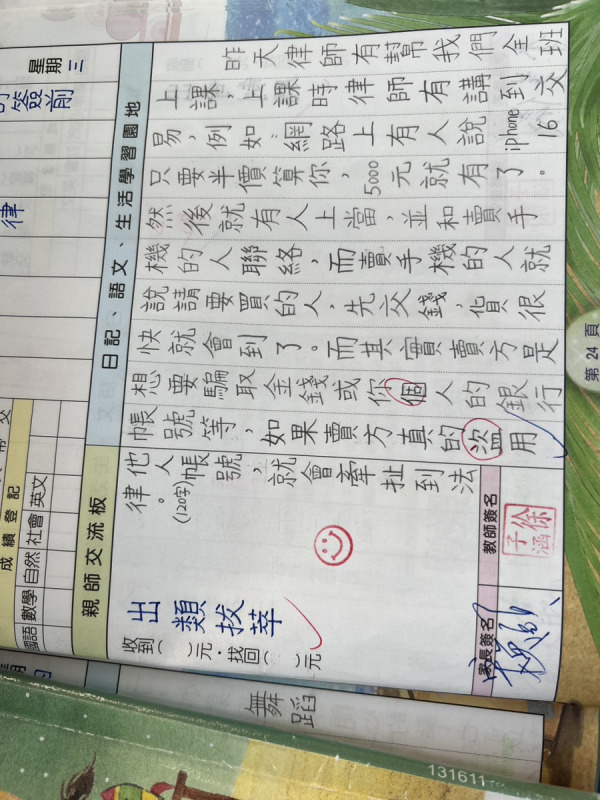 星期三
的簽前
律
日記、語文、生活學習園地
昨天律師有幫我們全班
上課，上課時律師有講到交
易，例如：網路上有人說iPhone 16
只要半價算你，5000元就有了。
然後就有人上當，並和賣手
機的人聯絡，而賣手機的人就
說請要買的人，先交錢，貨很
快就會到了。而其實賣方是
想要騙取金錢或你個人的銀行
帳號等，如果賣方真的盜用
他人帳號，就會牽扯到法
律。(120字)
成績登記
國語 數學 自然 社會 英文
親師交流板
出類拔萃
收到( )元．找回( )元
教師簽名
徐子涵
家長簽名
第24頁
舞蹈
131611